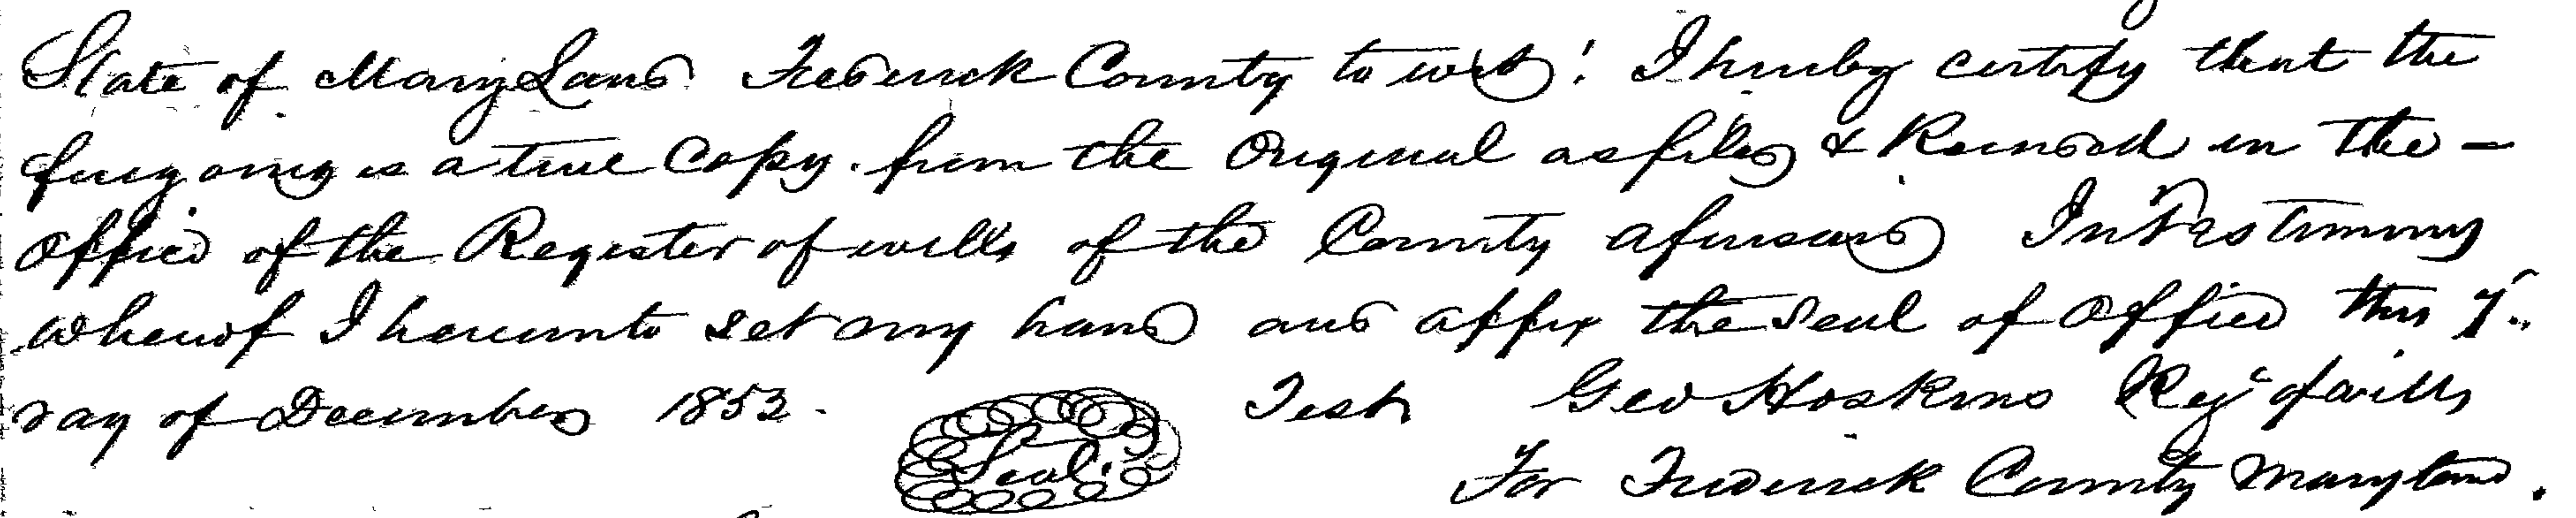 State of MaryLand Frederick County to wit! I hereby certify that the
foregoing is a true Copy. from the Original as filed & Recorded in the -
Office of the Register of wills of the County aforesaid In Testimony
whereof I hereunto set my hand and affix the Seal of Office this 7"
day of December 1853. Test Geo Hoskins Regr of wills
Seal.
For Frederick County Maryland.